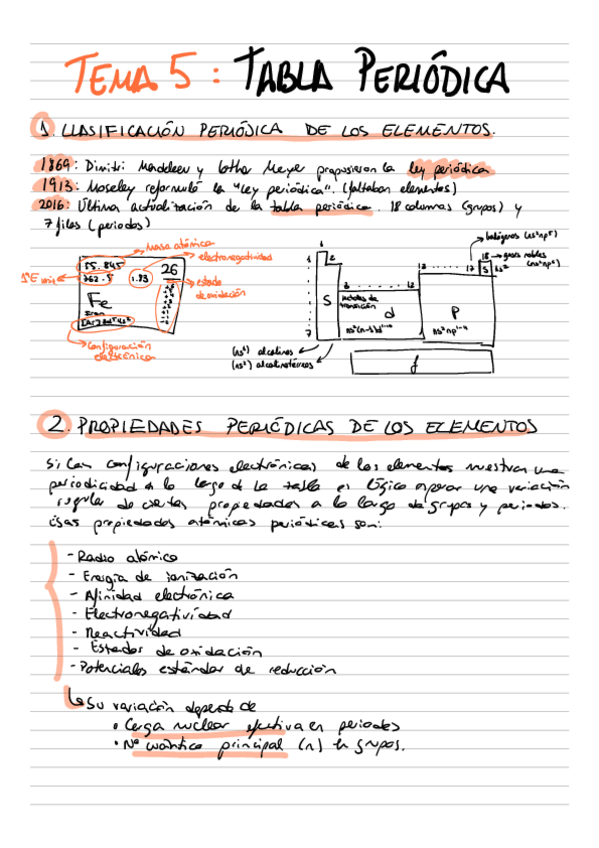 TEMA 5: TABLA PERIÓDICA
1. CLASIFICACIÓN PERIÓDICA DE LOS ELEMENTOS.
1869: Dimitri Mendeleev y Lothar Meyer propusieron la ley periódica
1913: Moseley reformuló la "ley periódica". (faltaban elementos)
2016: Última actualización de la tabla periódica. 18 columnas (grupos) y
7 filas (periodos)
masa atómica
electronegatividad
estado
de oxidación
1ªE
55.845
762.5
1.83
26
Fe
Iron
Configuración
electrónica
1
2
1
7
S
3
12
metales de
transición
d
ns²(n-1)d¹⁻¹⁰
13
17
18
gases nobles
(ns²np⁶)
halógenos (ns²np⁵)
S
P
f
(ns¹) alcalinos
(ns²) alcalinotérreos
2. PROPIEDADES PERIÓDICAS DE LOS ELEMENTOS
Si las configuraciones electrónicas de los elementos muestran una
periodicidad a lo largo de la tabla es lógico esperar una variación
regular de ciertas propiedades a lo largo de grupos y periodos.
Esas propiedades atómicas periódicas son:
- Radio atómico
- Energía de ionización
- Afinidad electrónica
- Electronegatividad
- Reactividad
- Estados de oxidación
- Potenciales estándar de reducción
Su variación depende de
• Carga nuclear efectiva en periodos
• Nº cuántico principal (n) en grupos.